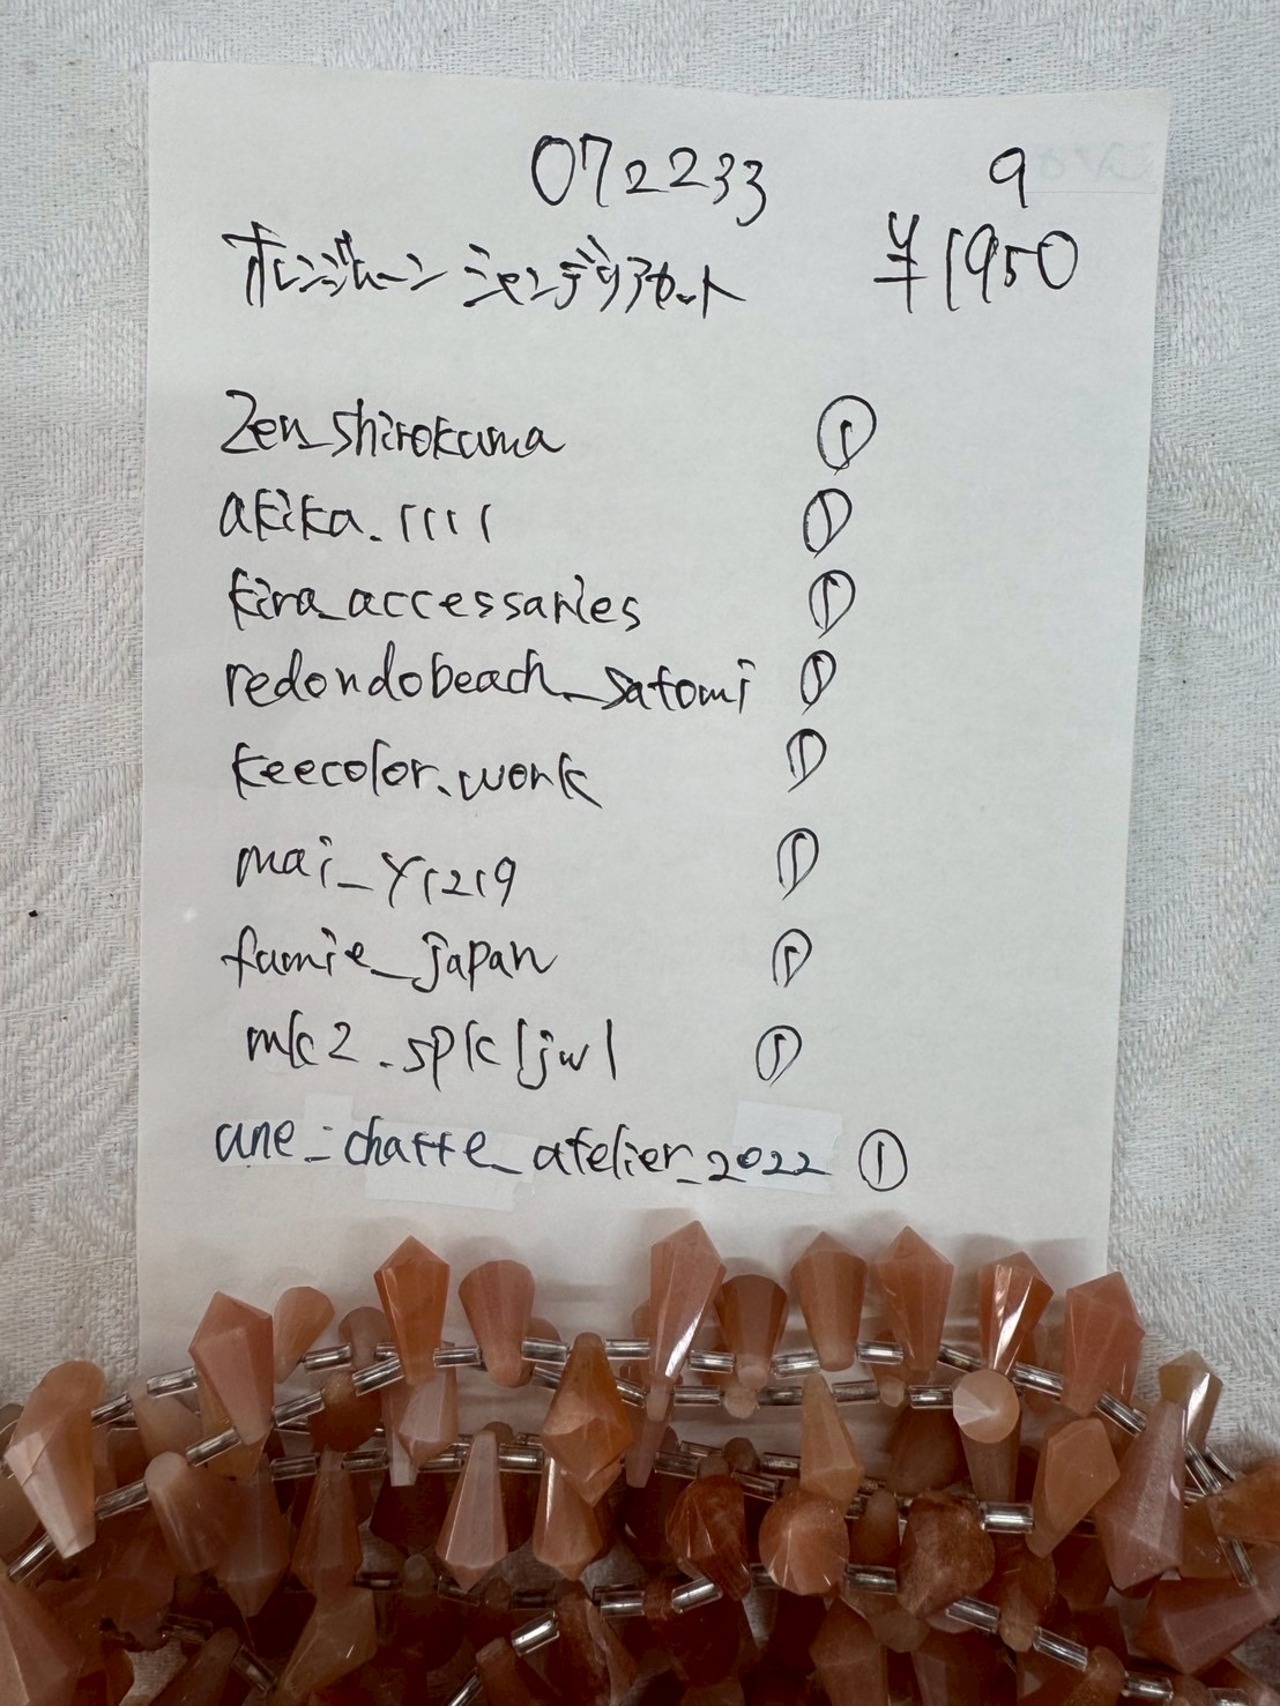 072233 9
オレンジムーン シャンデリアカット ¥1950
zen_shirokuma ①
akika.1111 ①
kira_accessaries ①
redondobeach_satomi ①
keecolor.work ①
mai_y1219 ①
fumie_japan ①
mk2.spkljwl ①
une_chatte_atelier_2022 ①